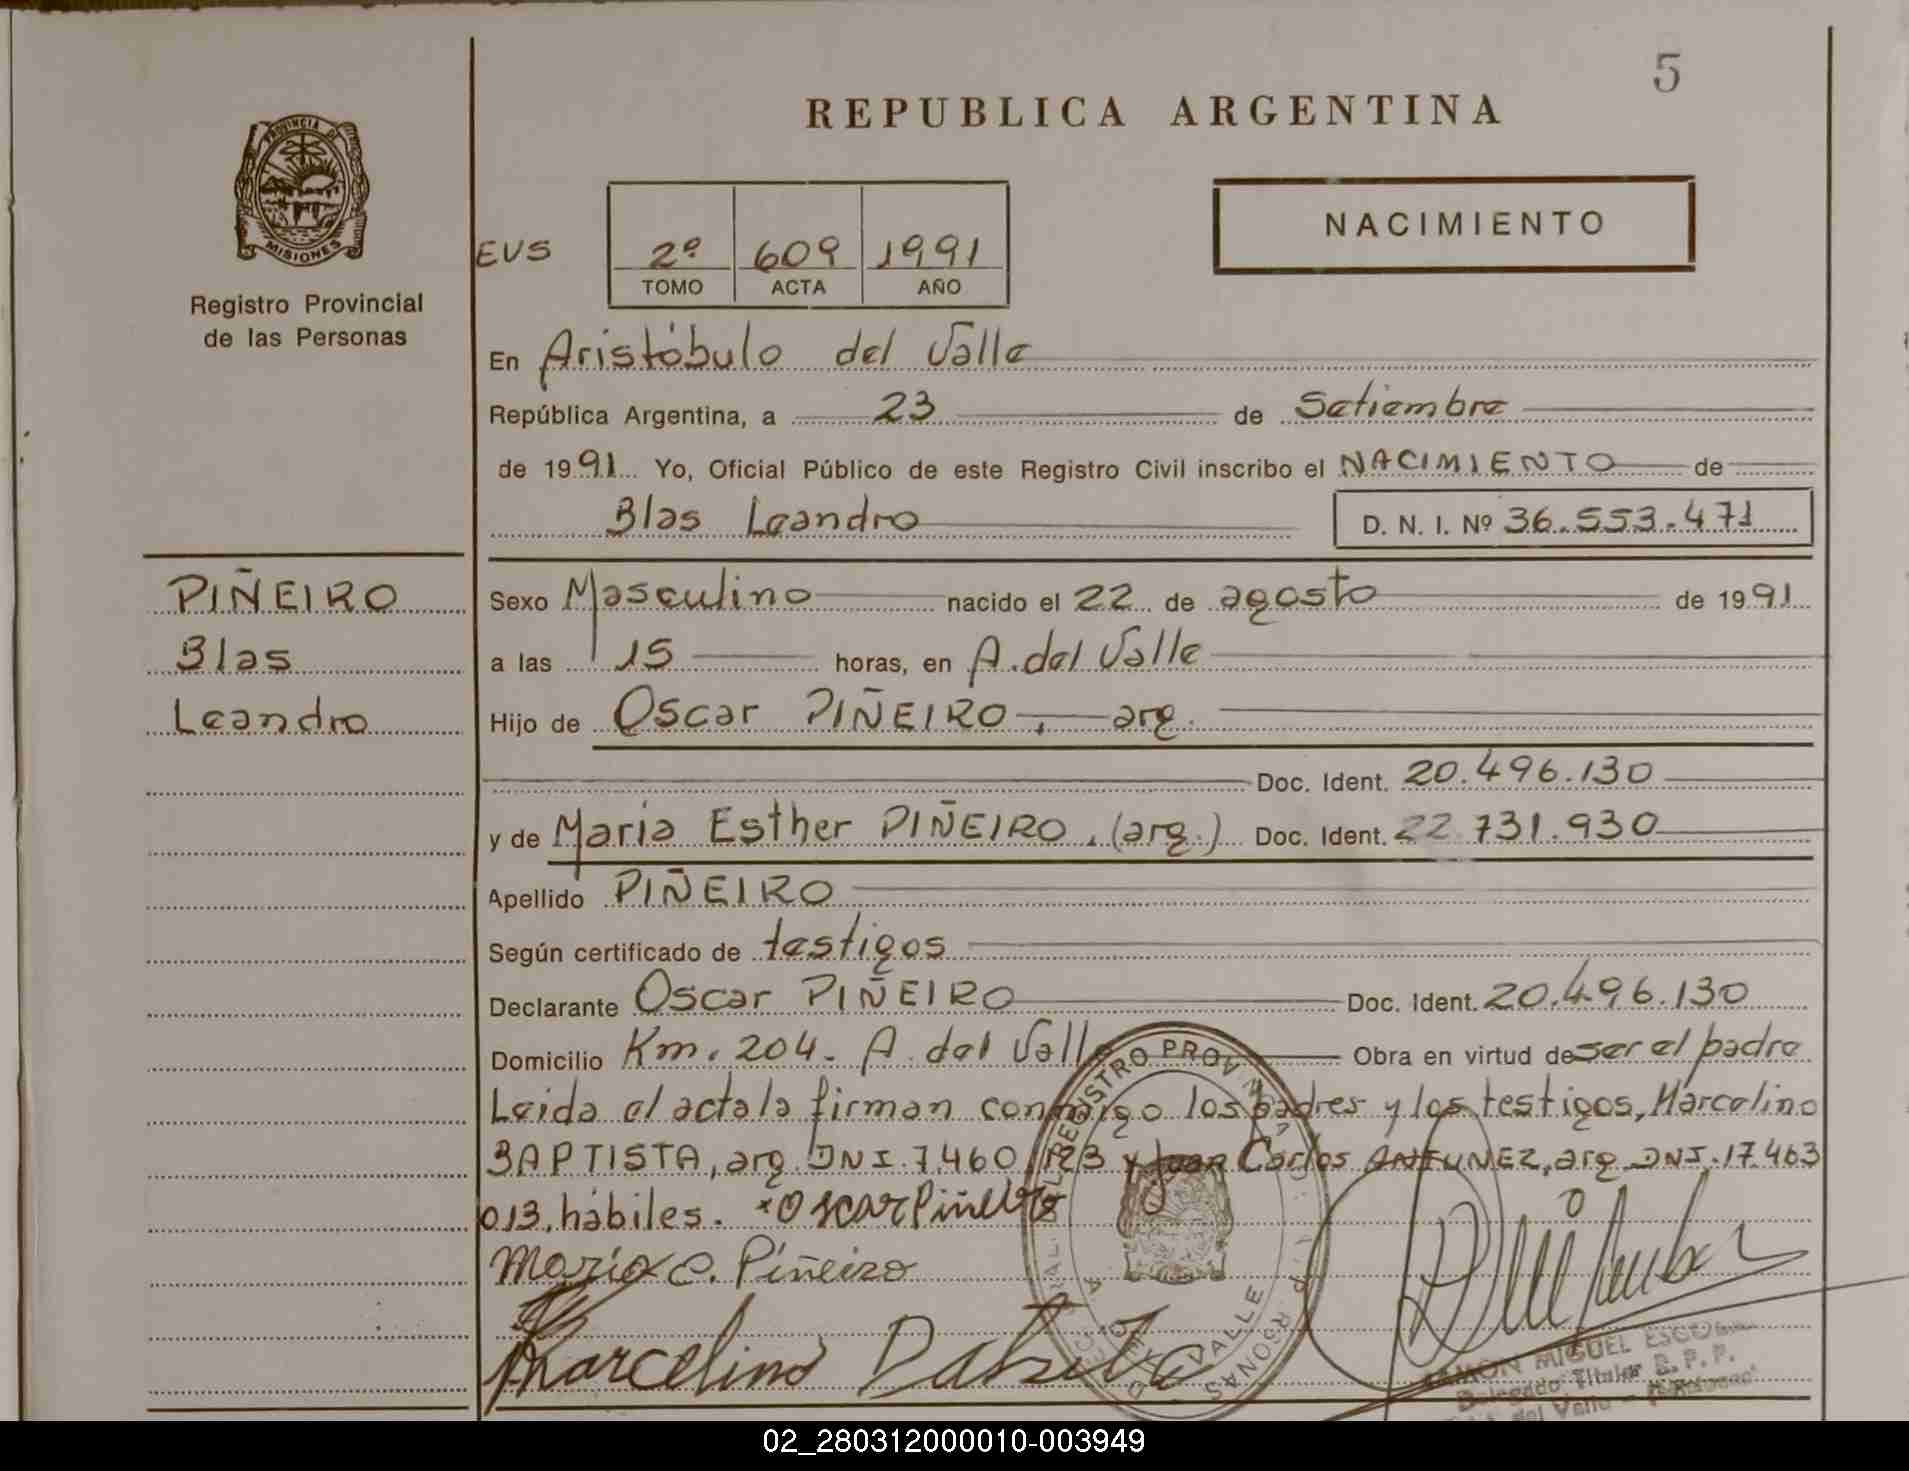 5
REPUBLICA ARGENTINA
PROVINCIA DE
MISIONES
Registro Provincial
de las Personas
EVS
2º 609 1991
TOMO ACTA AÑO
NACIMIENTO
En Aristóbulo del Valle
República Argentina, a 23 de Setiembre
de 1991 Yo, Oficial Público de este Registro Civil inscribo el NACIMIENTO de
Blas Leandro D. N. I. Nº 36.553.471
PIÑEIRO
Blas
Leandro
Sexo Masculino nacido el 22 de agosto de 1991
a las 15 horas, en A. del Valle
Hijo de Oscar PIÑEIRO, arg.
Doc. Ident. 20.496.130
y de Maria Esther PIÑEIRO, (arg.) Doc. Ident. 22.731.930
Apellido PIÑEIRO
Según certificado de testigos
Declarante Oscar PIÑEIRO Doc. Ident. 20.496.130
Domicilio Km. 204. A. del Valle Obra en virtud de ser el padre
Leida el acta la firman conmigo los padres y los testigos, Marcelino
BAPTISTA, arg. DNI. 7.460.123 y Juan Carlos ANTUNEZ, arg. DNI. 17.463
013, hábiles. *Oscar Piñeiro
Maria e. Piñeiro
Marcelino
REGISTRO PROVINCIAL
VALLE
MIGUEL
Delegado Titular R. P. P.
del Valle
02_280312000010-003949